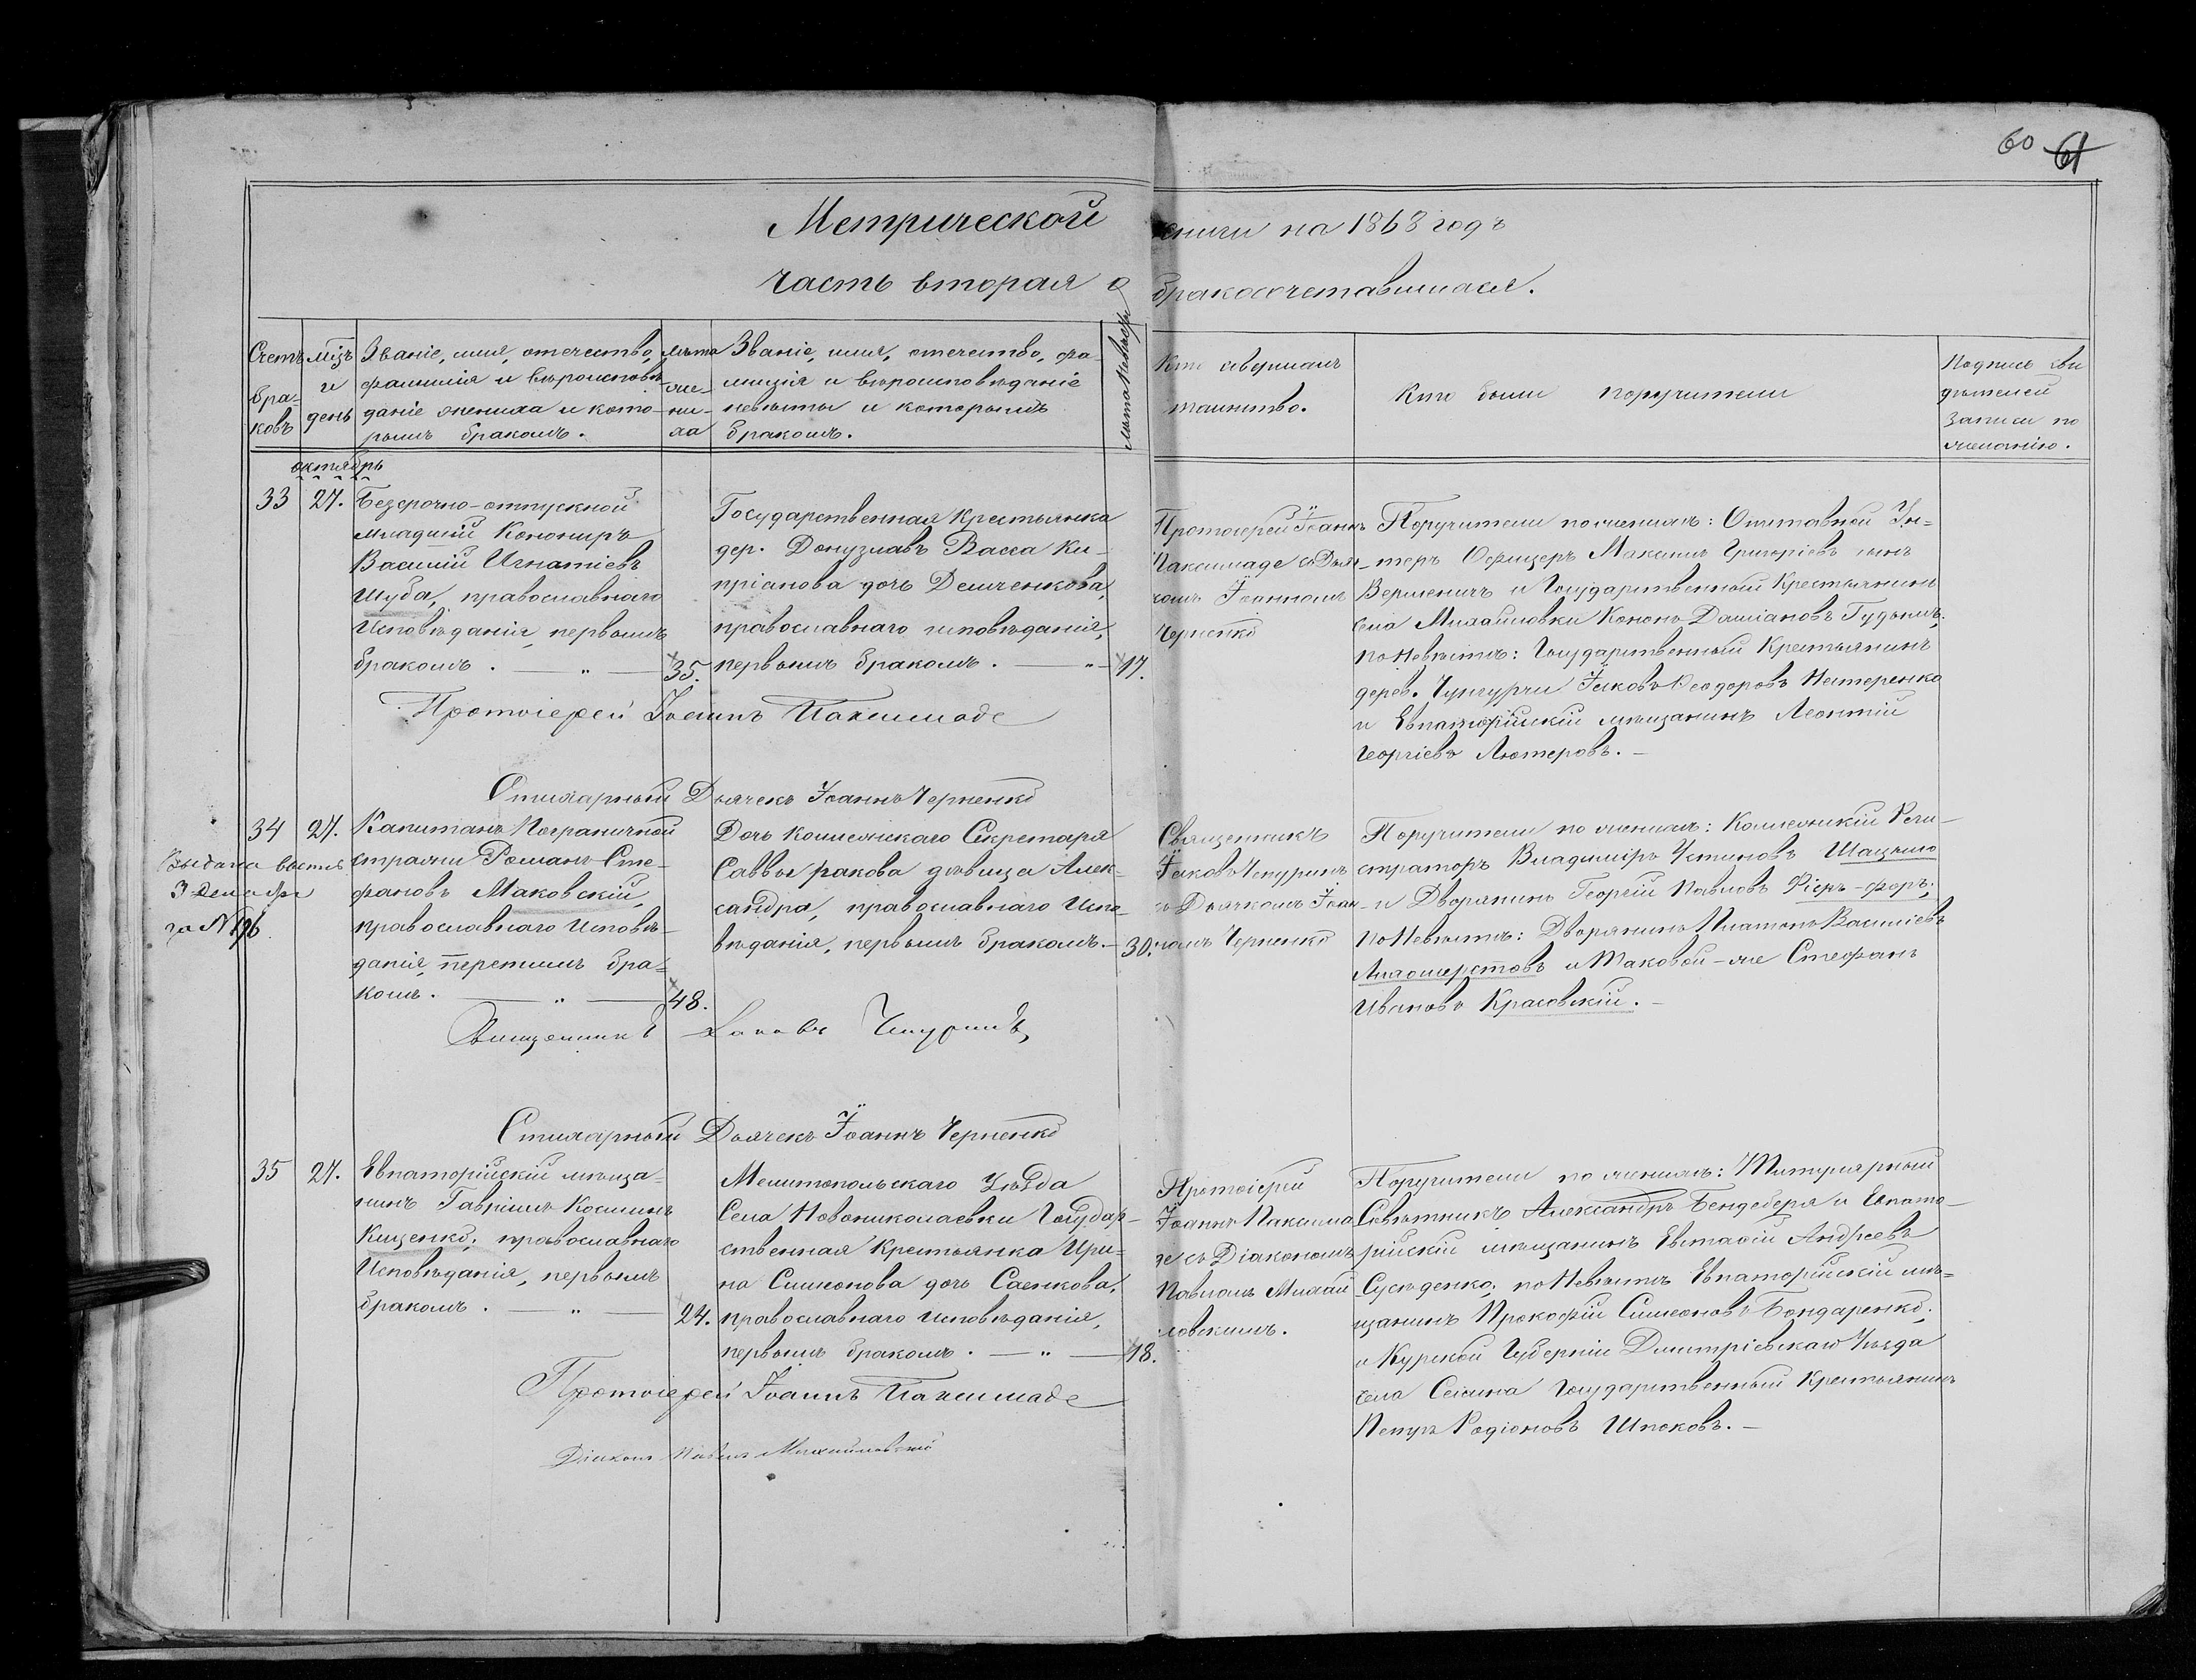 60 61
Метрической книги на 1868 годъ
часть вторая о бракосочетавшихся.
Счетъ браковъ
мѣз. и день
Званіе, имя, отечество,
фамилія и вѣроисповѣ-
даніе жениха и кото-
рымъ бракомъ.
Лѣта жениха
Званіе, имя, отечество, фа-
милія и вѣроисповѣданіе
невѣсты и которымъ
бракомъ.
Лѣта невѣсты
Кто совершалъ
таинство.
Кто были поручители
Подпись сви
дѣтелей
записи по
желанію.
октябрь
33 27.
Безсрочно-отпускной
младшій Конониръ
Василій Игнатіевъ
Шуба, православнаго
Исповѣданія, первымъ
бракомъ. — „ — 35.
Государственная Крестьянка
дер. Донузлавъ Васса Ки-
пріанова дочь Демченкова,
православнаго исповѣданія,
первымъ бракомъ. — „ — 17.
Протоіерей Іоаннъ
Паксимаде съ Дья-
комъ Іоанномъ
Черненко
Поручители по женихѣ: Отставной Ун-
теръ Офицеръ Максимъ Григоріевъ сынъ
Верменичъ и Государственный Крестьянинъ
села Михайловки Кононъ Даміановъ Гудымъ;
по Невѣстѣ: Государственный Крестьянинъ
дерев. Чунгурчи Іаковъ Ѳеодоровъ Нестеренко
и Евпаторійскій мѣщанинъ Леонтій
Георгіевъ Лютеровъ. —
Протоіерей Іоаннъ Паксимаде
Стихарный Дьячекъ Іоаннъ Черненко
34 27.
Выдана
3 Декабря
за № 196
Капитанъ Пограничной
стражи Романъ Сте-
фановъ Маковскій,
православнаго Исповѣ-
данія, первымъ бра-
комъ. — „ — 48.
Дочь Коллежскаго Секретаря
Саввы Ракова дѣвица Алек-
сандра, православнаго Испо-
вѣданія, первымъ бракомъ. — 30.
Священникъ
Іаковъ Чепуринъ
съ Дьячкомъ Іоан-
номъ Черненко
Поручители по женихѣ: Коллежскій Реги-
страторъ Владиміръ Устиновъ Шацкило
и Дворянинъ Георгій Павловъ Фіеръ-форъ;
по Невѣстѣ: Дворянинъ Платонъ Васильевъ
Лихошерстовъ и Таковой-же Стефанъ
Ивановъ Красовскій. —
Священникъ Іаковъ Чепуринъ
Стихарный Дьячекъ Іоаннъ Черненко
35 27.
Евпаторійскій мѣща-
нинъ Гавріилъ Косминъ
Кищенко; православнаго
Исповѣданія, первымъ
бракомъ. — „ — 24.
Мелитопольскаго Уѣзда
Села Новониколаевки Государ-
ственная Крестьянка Ири-
на Симеонова дочь Саенкова,
православнаго исповѣданія,
первымъ бракомъ. — „ — 18.
Протоіерей
Іоаннъ Паксима
де съ Діакономъ
Павломъ Михай
ловскимъ.
Поручители по женихѣ: Титулярный
Совѣтникъ Александръ Бендебери и Евпато-
рійскій мѣщанинъ Евстафій Андреевъ
Суседенко; по Невѣстѣ Евпаторійскій мѣ-
щанинъ Прокофій Симеоновъ Бондаренко;
и Курской Губерніи Дмитріевскаго Уѣзда
села Селина Государственный Крестьянинъ
Петръ Родіоновъ Шпаковъ. —
Протоіерей Іоаннъ Паксимаде
Діаконъ Павелъ Михайловскій